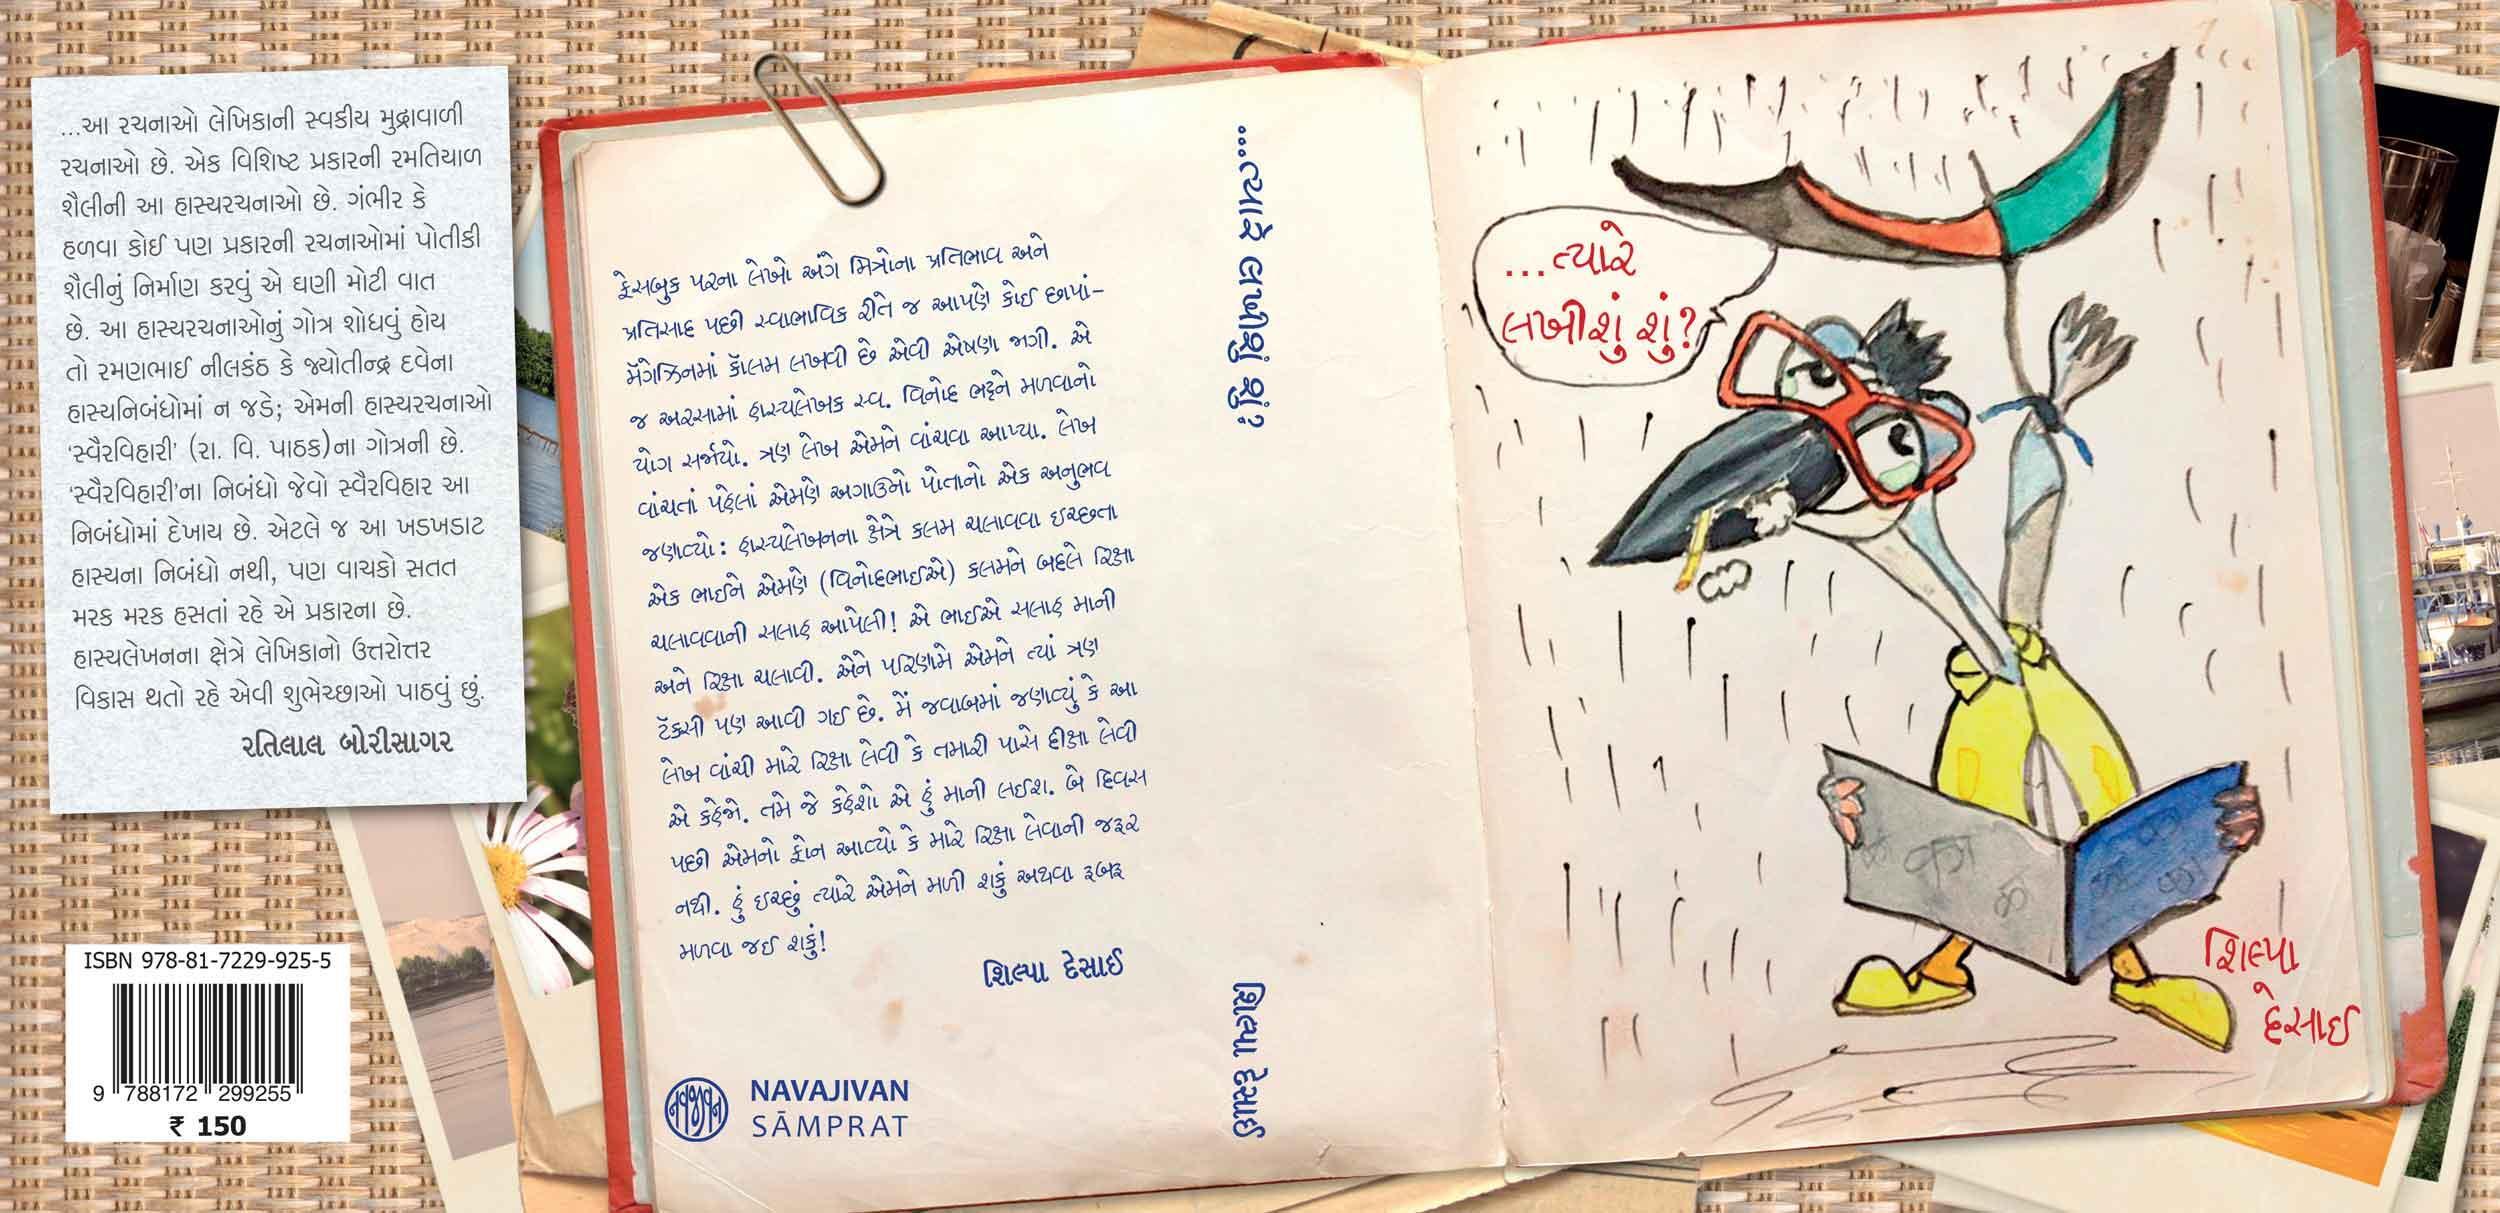 ...આ રચનાઓ લેખિકાની સ્વકીય મુદ્રાવાળી
રચનાઓ છે. એક વિશિષ્ટ પ્રકારની રમતિયાળ
શૈલીની આ હાસ્યરચનાઓ છે. ગંભીર કે
હળવા કોઈ પણ પ્રકારની રચનાઓમાં પોતીકી
શૈલીનું નિર્માણ કરવું એ ઘણી મોટી વાત
છે. આ હાસ્યરચનાઓનું ગોત્ર શોધવું હોય
તો રમણભાઈ નીલકંઠ કે જ્યોતીન્દ્ર દવેના
હાસ્યનિબંધોમાં ન જડે; એમની હાસ્યરચનાઓ
‘સ્વૈરવિહારી’ (રા. વિ. પાઠક)ના ગોત્રની છે.
‘સ્વૈરવિહારી’ના નિબંધો જેવો સ્વૈરવિહાર આ
નિબંધોમાં દેખાય છે. એટલે જ આ ખડખડાટ
હાસ્યના નિબંધો નથી, પણ વાચકો સતત
મરક મરક હસતાં રહે એ પ્રકારના છે.
હાસ્યલેખનના ક્ષેત્રે લેખિકાનો ઉત્તરોત્તર
વિકાસ થતો રહે એવી શુભેચ્છાઓ પાઠવું છું.
રતિલાલ બોરીસાગર
ISBN 978-81-7229-925-5
9 788172 299255
₹ 150
ફેસબુક પરના લેખો અંગે મિત્રોના પ્રતિભાવ અને
પ્રતિસાદ પછી સ્વાભાવિક રીતે જ આપણે કોઈ છાપાં-
મૅગેઝિનમાં કૉલમ લખવી છે એવી એષણા જાગી. એ
જ અરસામાં હાસ્યલેખક સ્વ. વિનોદ ભટ્ટને મળવાનો
યોગ સર્જાયો. ત્રણ લેખ એમને વાંચવા આપ્યા. લેખ
વાંચતાં પહેલાં એમણે અગાઉનો પોતાનો એક અનુભવ
જણાવ્યો : હાસ્યલેખનના ક્ષેત્રે કલમ ચલાવવા ઇચ્છતા
એક ભાઈને એમણે (વિનોદભાઈએ) કલમને બદલે રિક્ષા
ચલાવવાની સલાહ આપેલી! એ ભાઈએ સલાહ માની
અને રિક્ષા ચલાવી. એને પરિણામે એમને ત્યાં ત્રણ
ટૅક્સી પણ આવી ગઈ છે. મેં જવાબમાં જણાવ્યું કે આ
લેખ વાંચી મારે રિક્ષા લેવી કે તમારી પાસે દીક્ષા લેવી
એ કહેજો. તમે જે કહેશો એ હું માની લઈશ. બે દિવસ
પછી એમનો ફોન આવ્યો કે મારે રિક્ષા લેવાની જરૂર
નથી. હું ઇચ્છું ત્યારે એમને મળી શકું અથવા રૂબરૂ
મળવા જઈ શકું!
શિલ્પા દેસાઈ
નવજીવન
NAVAJIVAN
SĀMPRAT
...ત્યારે લખીશું શું?
શિલ્પા દેસાઈ
...ત્યારે
લખીશું શું?
શિલ્પા
દેસાઈ